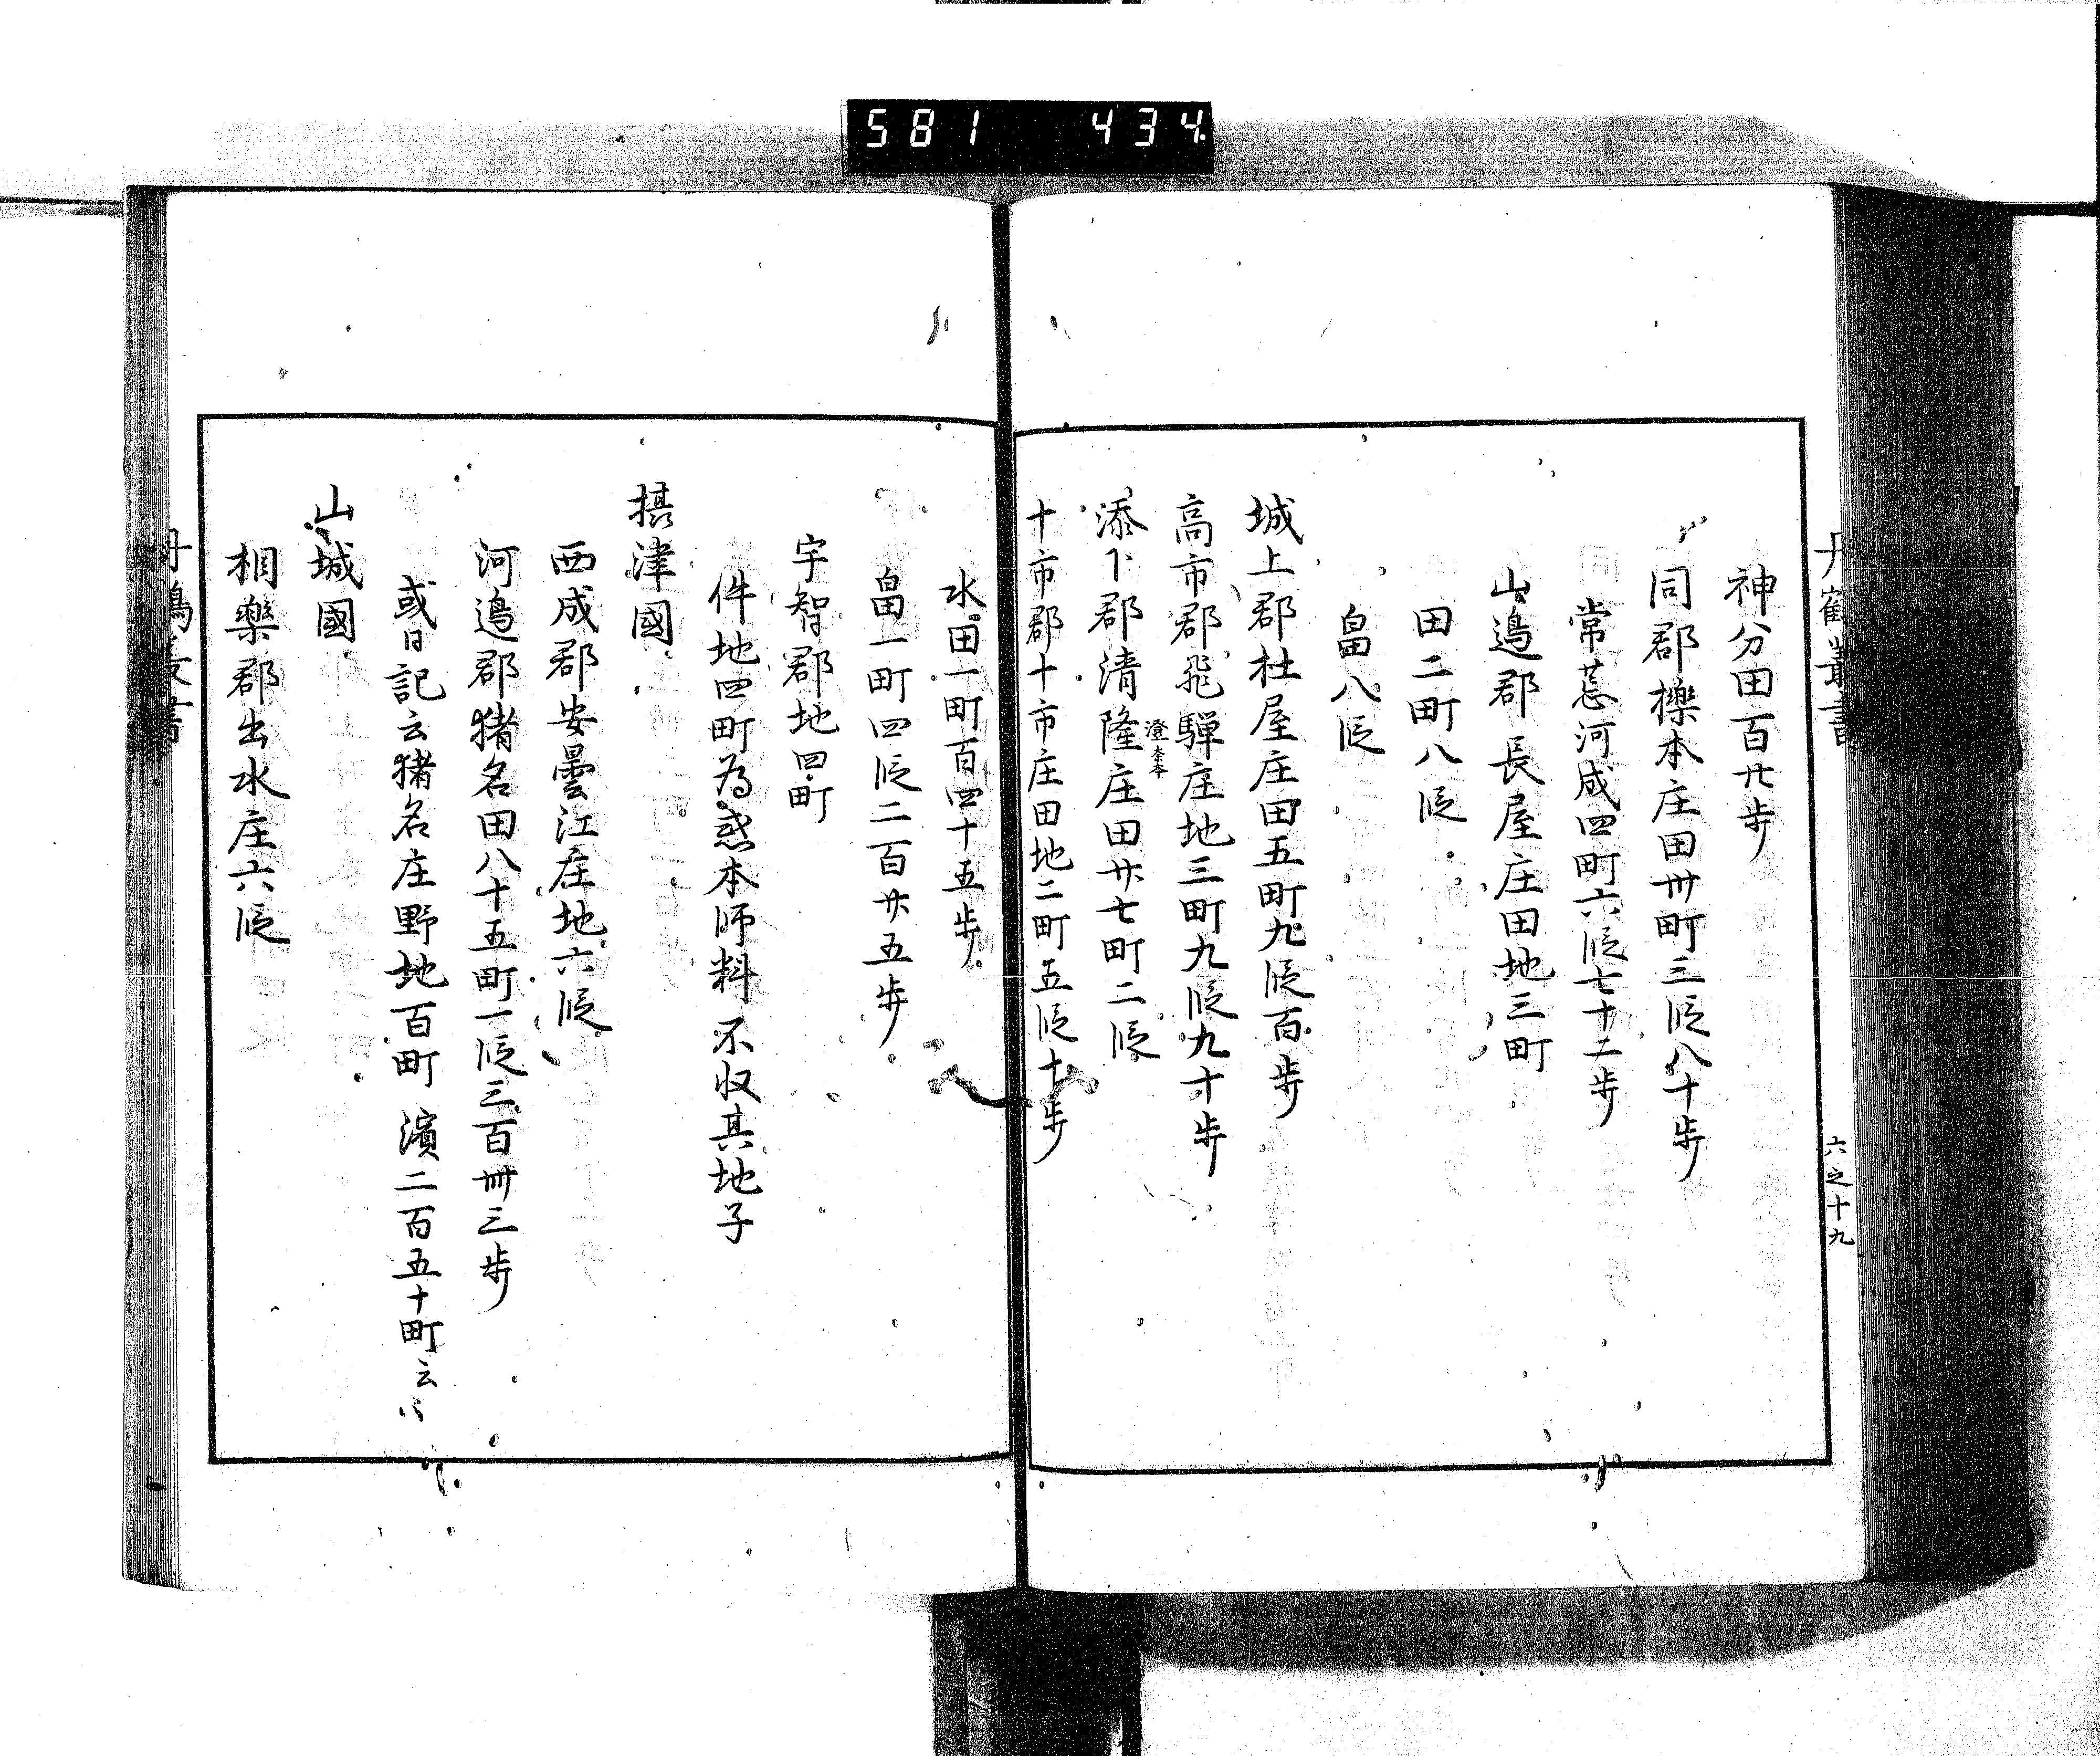 581 434
丹鶴叢書
六之十九
神分田百廿歩
同郡櫟本庄田卅町三段八十歩
常荒河成四町六段七十二歩
山邊郡長屋庄田地三町
田二町八段
畠八段
城上郡杜屋庄田五町九段百歩
高市郡飛騨庄地三町九段九十歩
添下郡清隆庄田廿七町二段
澄本
十市郡十市庄田地二町五段十歩
水田一町百四十五歩
畠一町四段二百廿五歩
宇智郡地四町
件地四町為惑本師料不収其地子
摂津國
西成郡安曇江庄地六段
河邊郡猪名田八十五町一段三百卌三歩
或日記云猪名庄野地百町濱二百五十町云〻
山城國
相樂郡出水庄六段